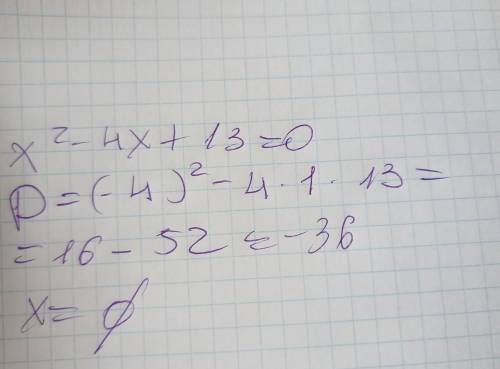 x²-4x+13=0
D=(-4)²-4·1·13=
=16-52=-36
x=∅